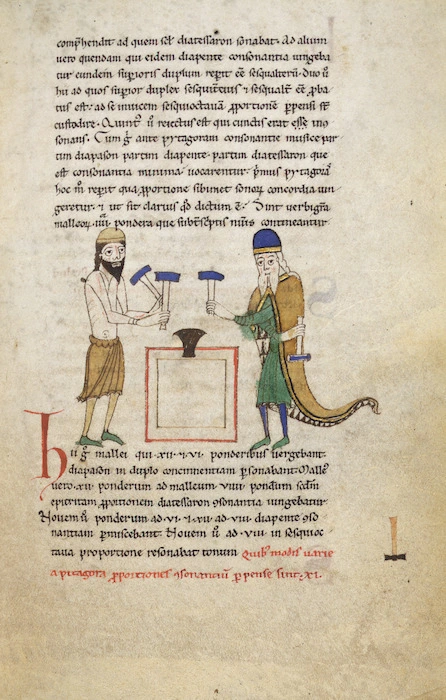 comp̄hendit ad quem sct̄ diatessaron sonabat. Ad alium
uero quendam qui eidem diapente consonantia iungeba
tur eundem supioris duplum repit eē sesqualterū. Duo ū
hii ad quos supior duplex sesq̄tercius ⁊ sesqualt̄ eē ꝓba
tus est. ad se inuicem sesquioctauā ꝓportionē ꝑpensi st̄
custodire. Quint' ū reiectus est qui cunctis erat esse ın
sonans. Cum ḡ ante pytagoram consonantie musice par
tim diapason partim diapente. partim diatessaron que
est consonantia minima uocarentur. pͥmus pytagorā
hoc m̄ repit qua ꝓportione sibimet sonoꝝ concordia iun
geretur. ⁊ ut sit clarius qd̄ dictum ē. Sint uerbi gr̄a
malleoꝝ .iiii. pondera que subt̄ sc̄ptis nūis contineantur
hii ḡ mallei qui .xii. ⁊ .vi. ponderibus uergebant
diapason in duplo concinnentiam ꝑsonabant. Malle'
uero .xii. ponderum ad malleum .viiii. pondum scdm
epitritam ꝓportionem diatessaron ꝯsonantia iungebatur
Nouem ū ponderum ad .vi. ⁊ .xii. ad .viii. diapente ꝯso
nantiam ꝑmiscebant. Nouem ū ad .viii. in sesquioc
taua proportione resonabat tonum Quib' modis uarie
a pitagora ꝓportiones ꝯsonantiū ꝑpense sint. xi.